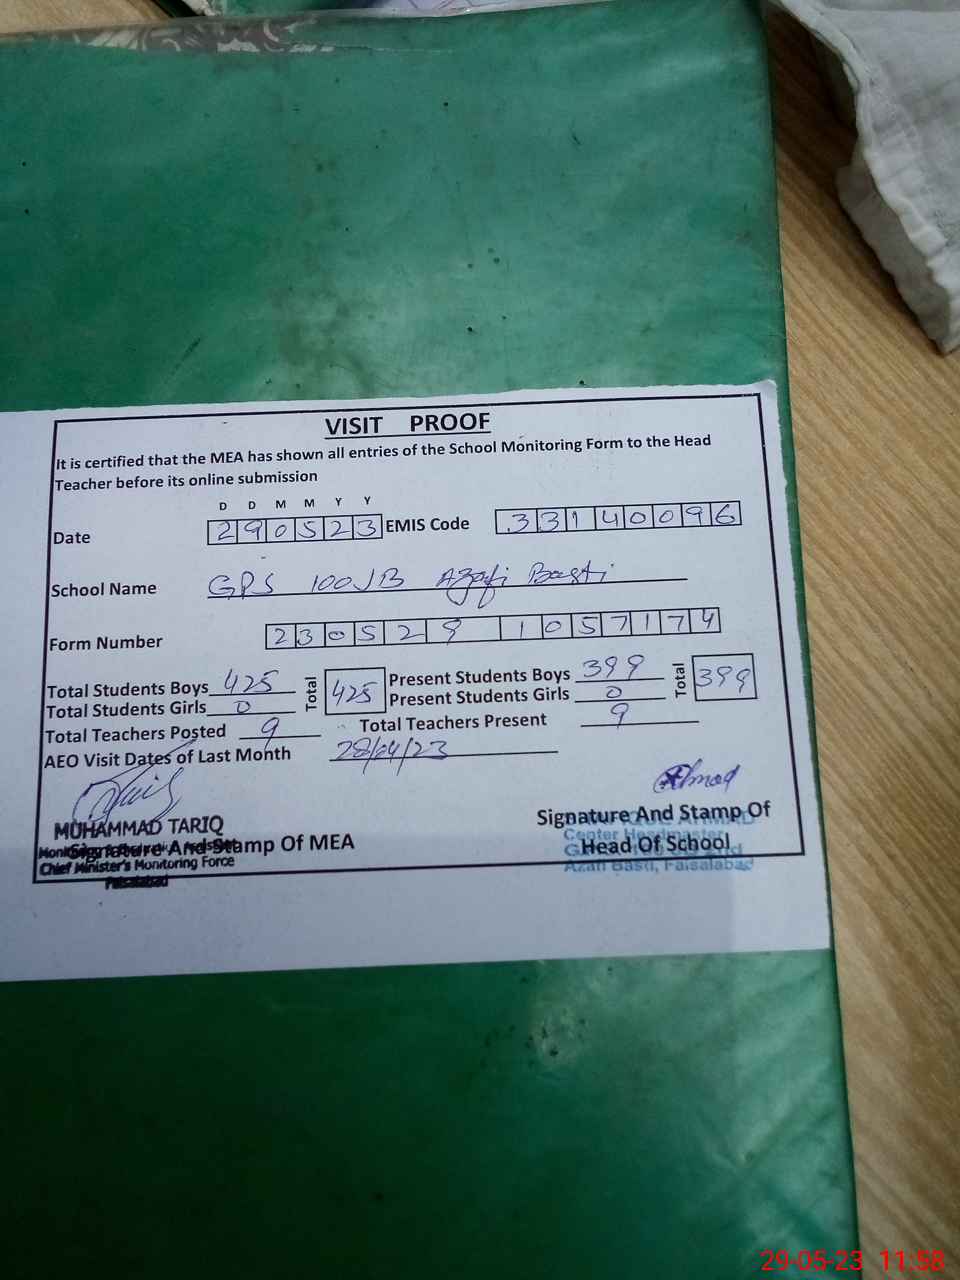 VISIT PROOF
It is certified that the MEA has shown all entries of the School Monitoring Form to the Head
Teacher before its online submission
D D M M Y Y
Date 290523 EMIS Code 33140096
School Name GPS 100 JB Azafi Basti
Form Number 230529 1057174
Total Students Boys 425 Total 425 Present Students Boys 399 Total 399
Total Students Girls 0 Present Students Girls 0
Total Teachers Posted 9 Total Teachers Present 9
AEO Visit Dates of Last Month 28/04/23
Ahmad
MUHAMMAD TARIQ
Signature And Stamp Of MEA
Chief Minister's Monitoring Force
Faisalabad
Signature And Stamp Of
Head Of School
AHMAD
Center Headmaster
Azafi Basti, Faisalabad
29-05-23 11:58